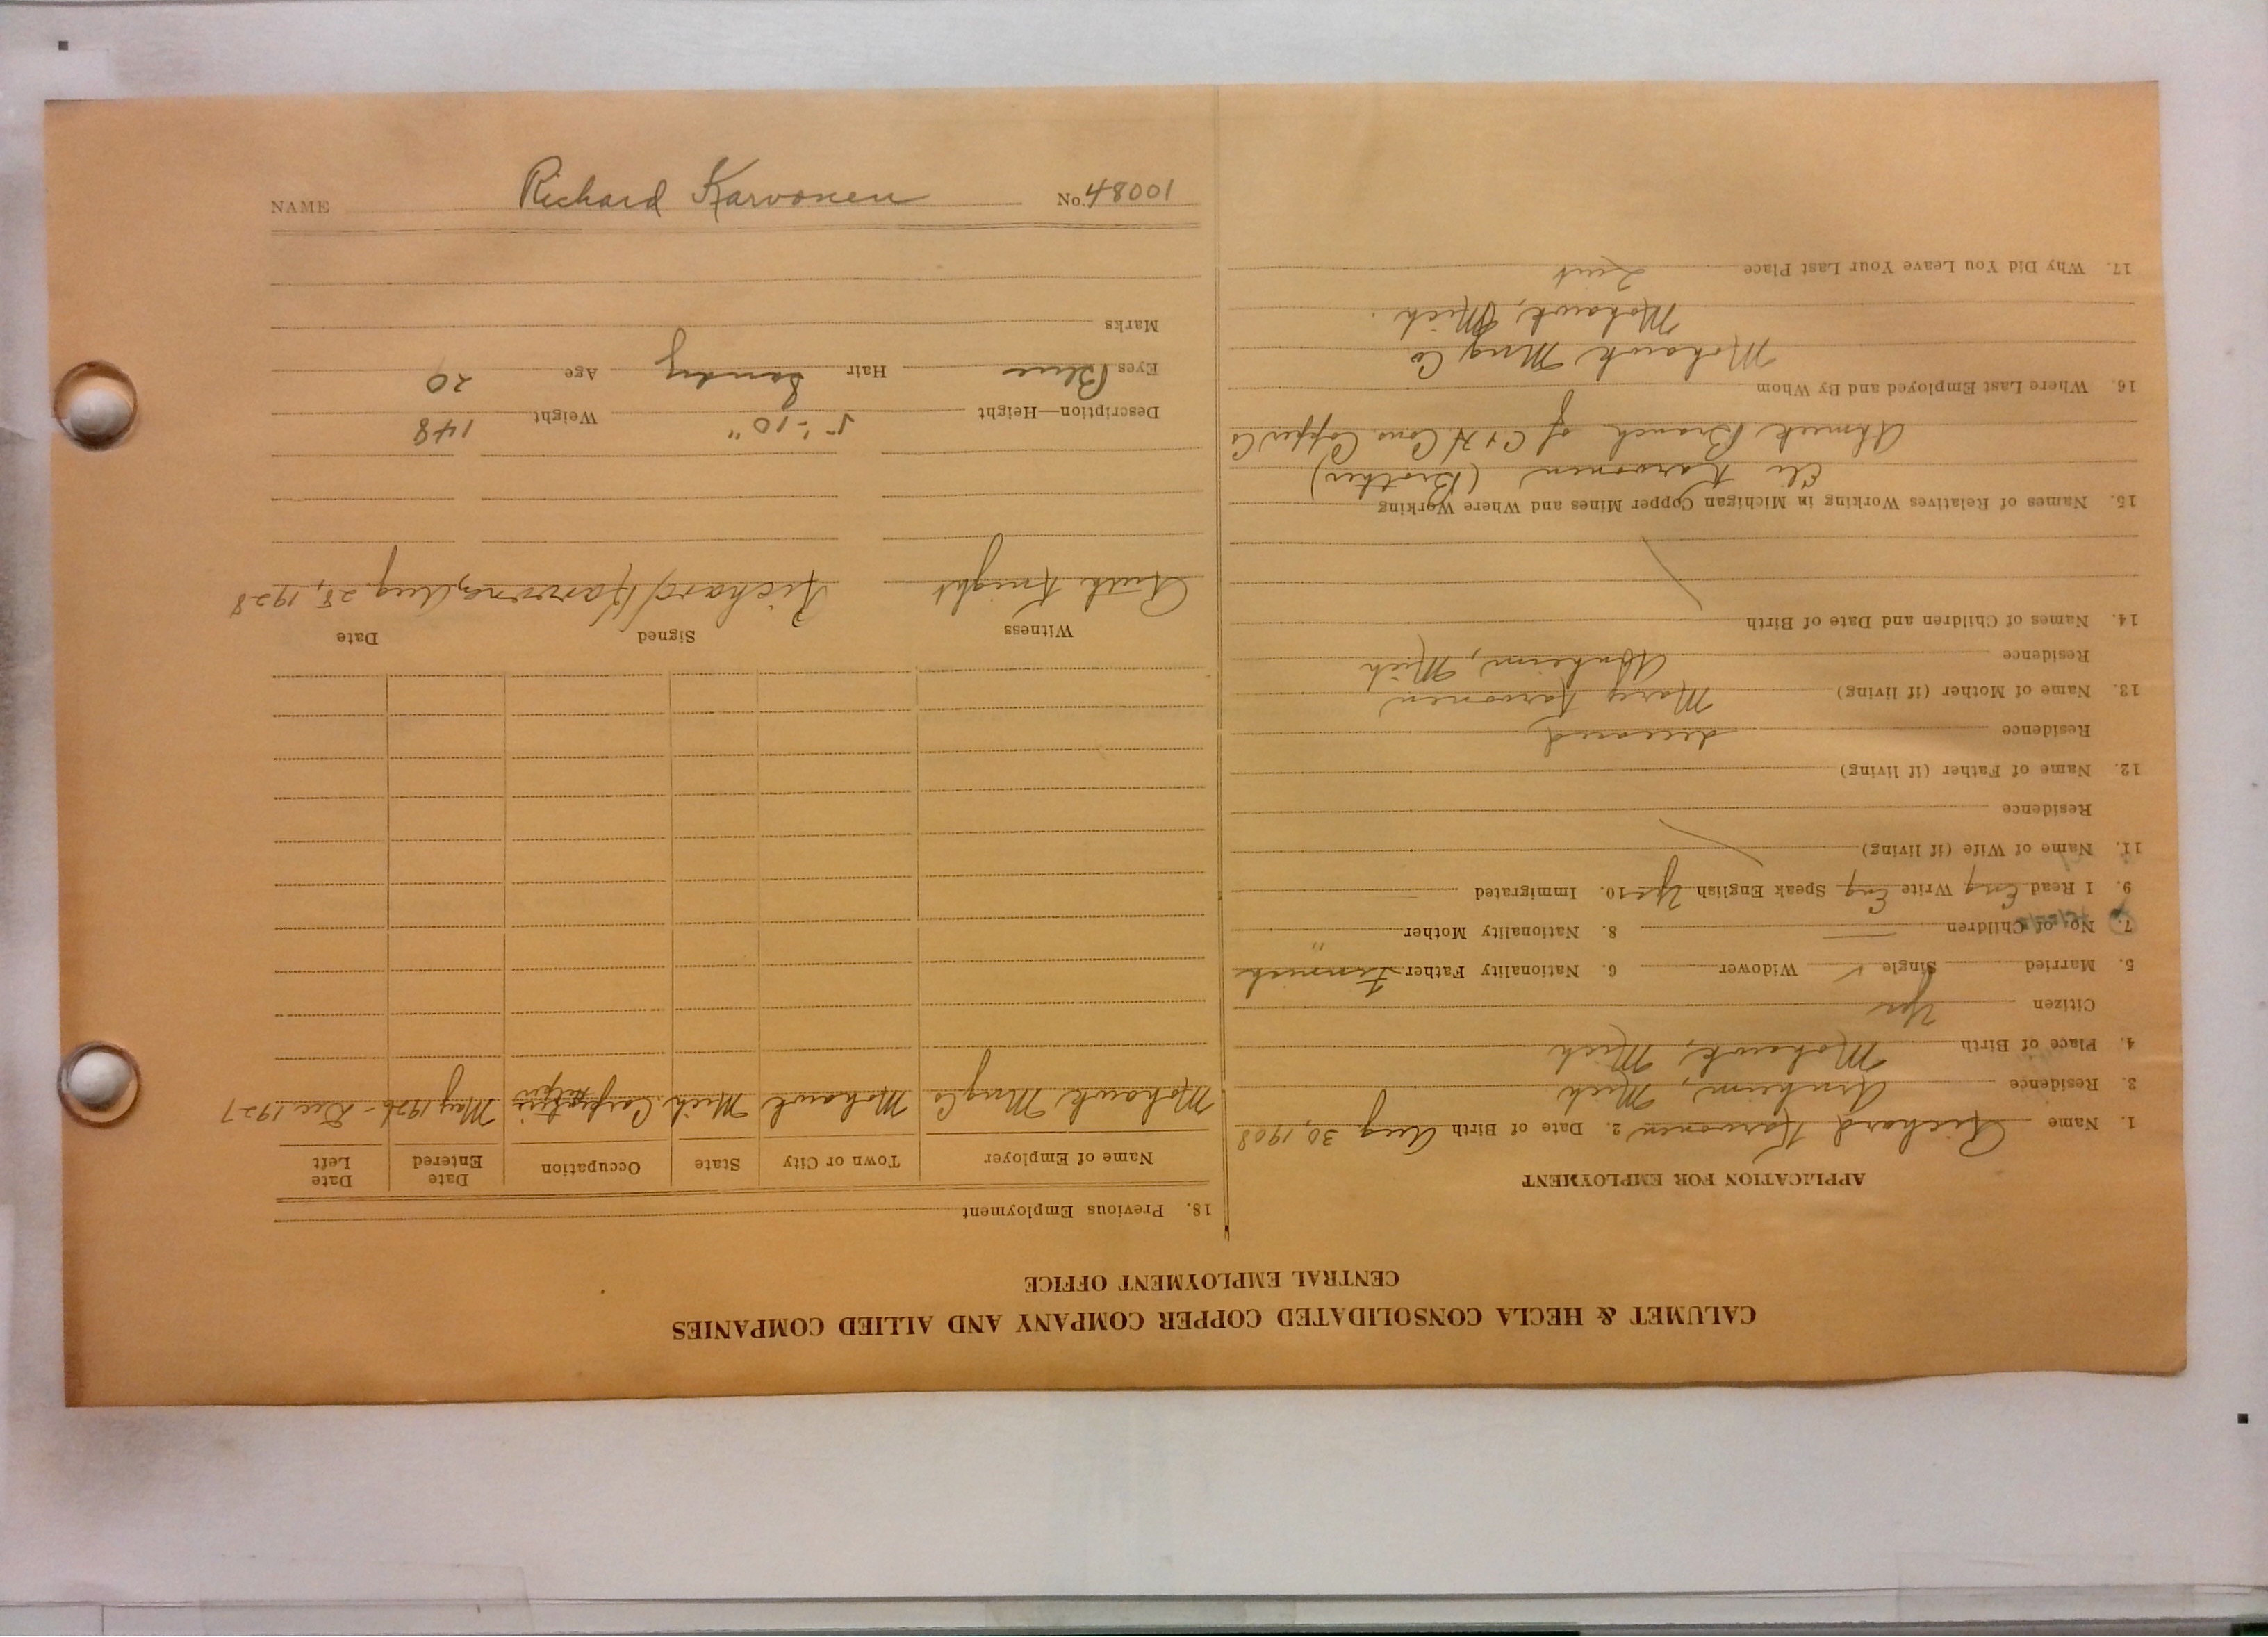 CALUMET & HECLA CONSOLIDATED COPPER COMPANY AND ALLIED COMPANIES
CENTRAL EMPLOYMENT OFFICE
APPLICATION FOR EMPLOYMENT
1. Name Richard Karvonen 2. Date of Birth Aug 30, 1908
3. Residence Arnheim, Mich
4. Place of Birth Mohawk, Mich
Citizen Yes
5. Married Single ✓ Widower 6. Nationality Father Finnish
7. No. of Children — 8. Nationality Mother "
9. I Read Eng Write Eng Speak English Yes 10. Immigrated
11. Name of Wife (if living)
Residence
12. Name of Father (if living)
Residence deceased
13. Name of Mother (if living) Mary Karvonen
Residence Arnheim, Mich
14. Names of Children and Date of Birth
15. Names of Relatives Working in Michigan Copper Mines and Where Working
Eli Karvonen (Brother)
Ahmeek Branch of C & H Cons. Copper Co
16. Where Last Employed and By and Whom
Mohawk Mng Co
Mohawk, Mich.
17. Why Did You Leave Your Last Place Quit
18. Previous Employment
Name of Employer Town or City State Occupation Date Entered Date Left
Mohawk Mng Co Mohawk Mich. May 1926 - Dec 1927
Witness Signed Date
Ruth Knight Richard Karvonen Aug. 28, 1928
Description—Height 5'-10" Weight 148
Eyes Blue Hair Sandy Age 20
Marks
NAME Richard Karvonen No. 48001